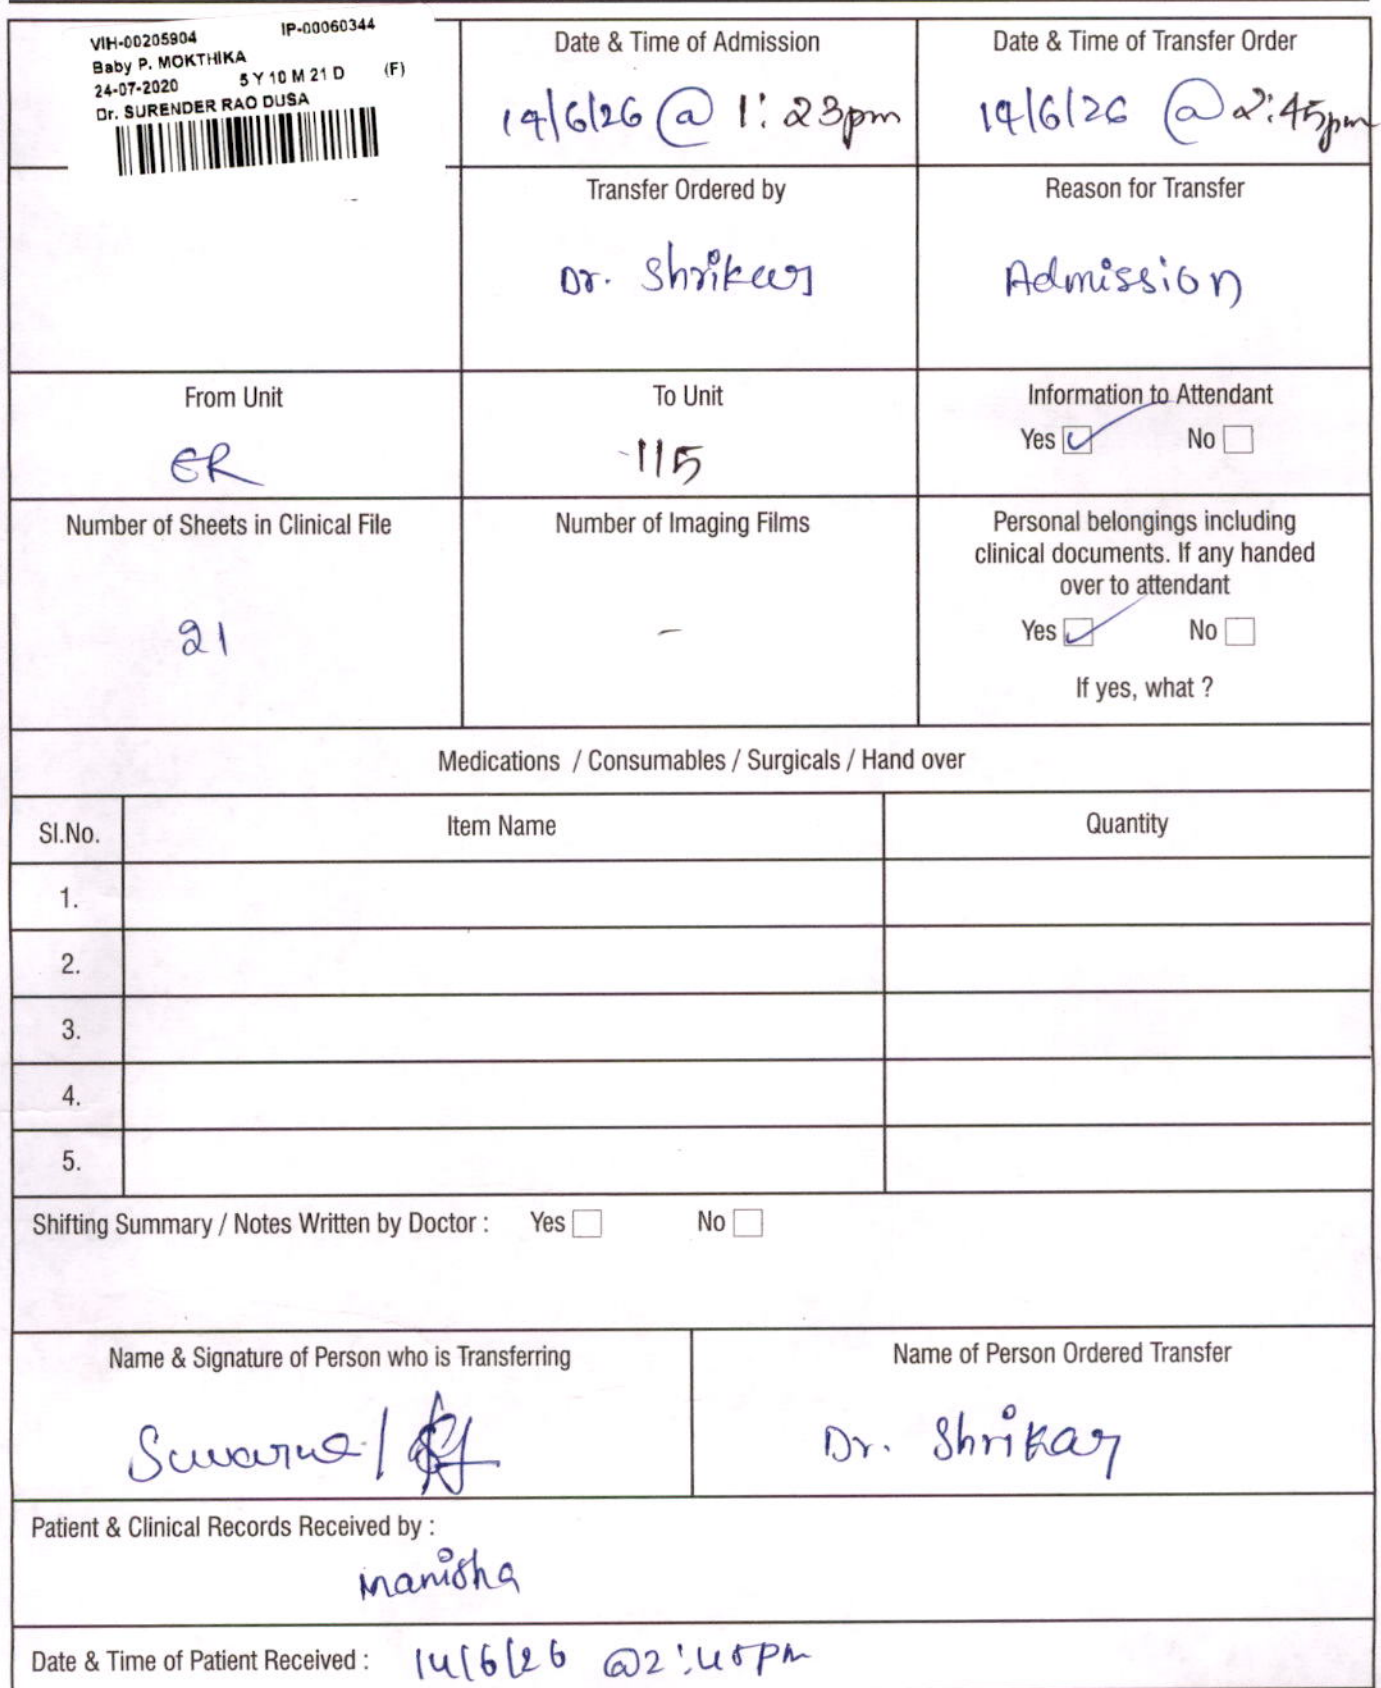 VIH-00205904 IP-00060344
Baby P. MOKTHIKA
24-07-2020 5 Y 10 M 21 D (F)
Dr. SURENDER RAO DUSA
Date & Time of Admission
14/6/26 @ 1:23pm
Date & Time of Transfer Order
14/6/26 @ 2:45pm
Transfer Ordered by
Dr. Shrikar
Reason for Transfer
Admission
From Unit
ER
To Unit
115
Information to Attendant
Yes No
Number of Sheets in Clinical File
21
Number of Imaging Films
-
Personal belongings including
clinical documents. If any handed
over to attendant
Yes No
If yes, what ?
Medications / Consumables / Surgicals / Hand over
Sl.No. Item Name Quantity
1.
2.
3.
4.
5.
Shifting Summary / Notes Written by Doctor : Yes No
Name & Signature of Person who is Transferring
Suvarna /
Name of Person Ordered Transfer
Dr. Shrikar
Patient & Clinical Records Received by :
manisha
Date & Time of Patient Received : 14/6/26 @2:45pm